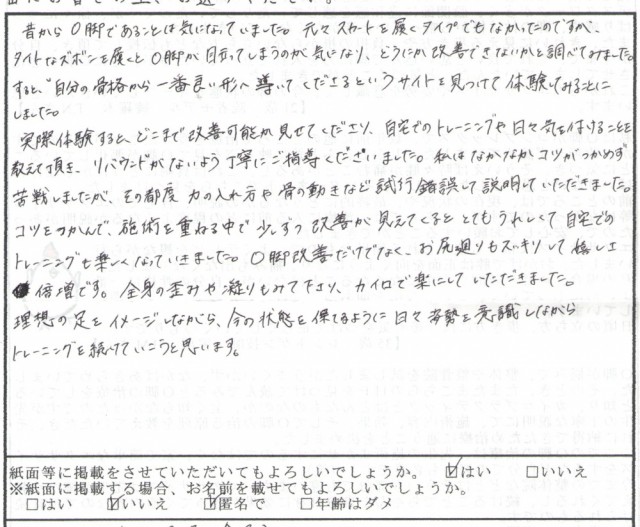 昔からO脚であることは気になっていました。元々スカートを履くタイプでもなかったのですが、
タイトなズボンを履くとO脚が目立ってしまうのが気になり、どうにか改善できないかと調べてみました。
すると、"自分の骨格から一番良い形へ導いてくださるというサイトを見つけて体験してみることに
しました。
実際体験すると、どこまで改善可能か見せてくださり、自宅でのトレーニングや日々気を付けることを
教えて頂き、リバウンドがないよう丁寧にご指導くださいました。私はなかなかコツがつかめず
苦戦しましたが、その都度 力の入れ方や骨の動きなど試行錯誤して説明していただきました。
コツをつかんで、施術を重ねる中で少しずつ改善が見えてくるととてもうれしくて自宅での
トレーニングも楽しくなっていきました。O脚改善だけでなく、お尻廻りもスッキリして嬉しさ
倍増です。全身の歪みや凝りもみて下さり、カイロで楽にしていただきました。
理想の足をイメージしながら、今の状態を保てるように日々姿勢を意識しながら
トレーニングを続けていこうと思います。
紙面等に掲載をさせていただいてもよろしいでしょうか。 ☑はい □いいえ
※紙面に掲載する場合、お名前を載せてもよろしいでしょうか。
□はい ☑いいえ ☑匿名で □年齢はダメ